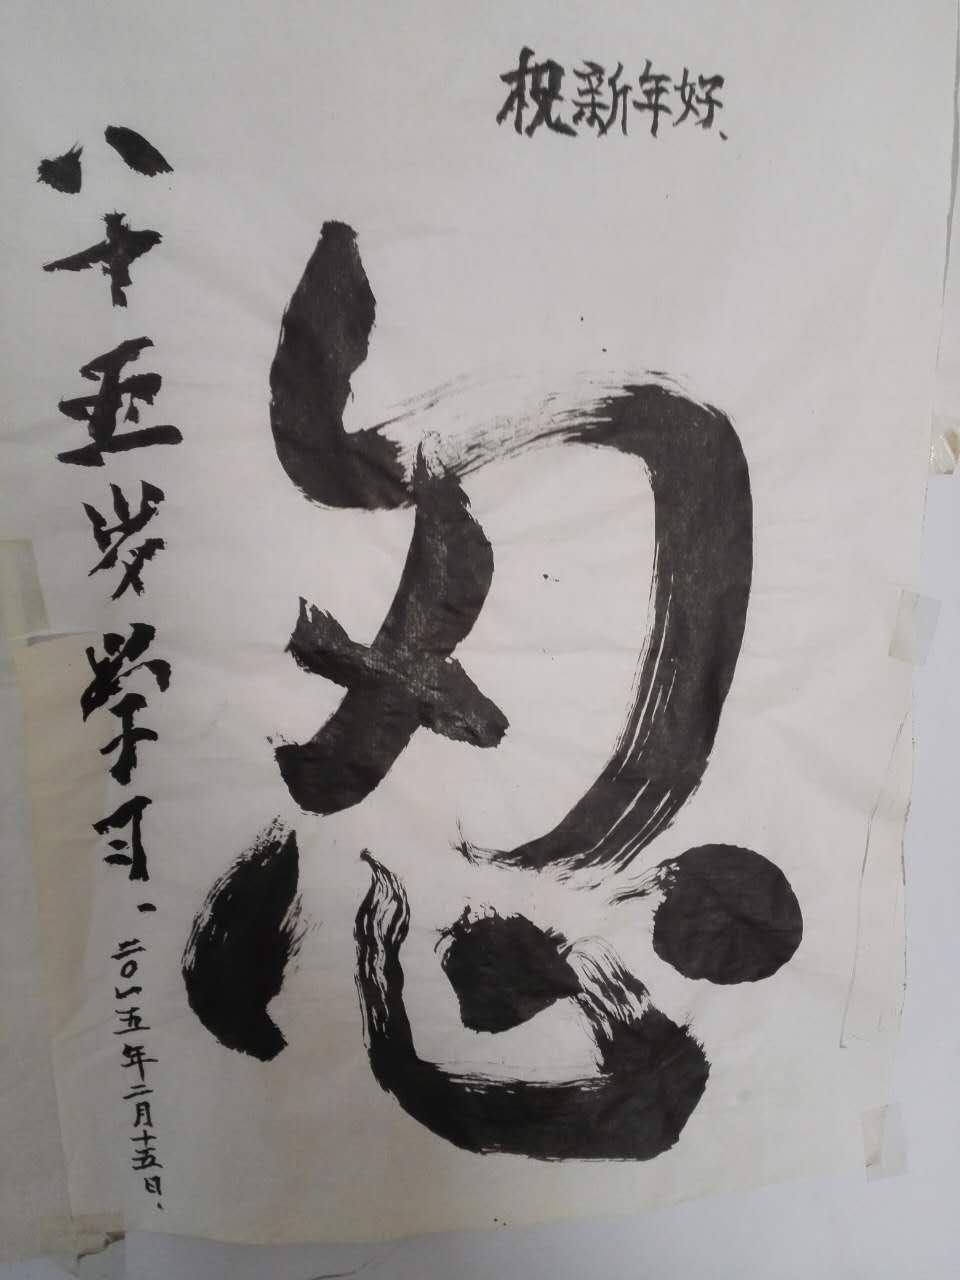 祝新年好、
忍
八十五岁学习、
二〇一五年二月十五日、